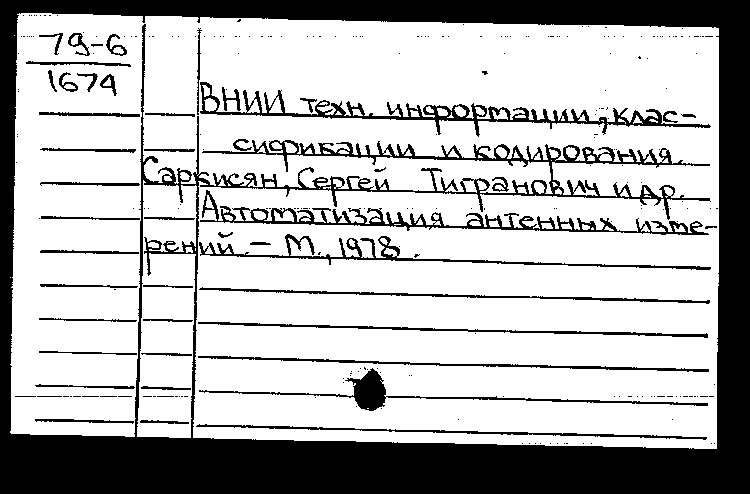 79-6
1674
ВНИИ техн. информации, клас-
сификации и кодирования.
Саркисян, Сергей Тигранович и др.
Автоматизация антенных изме-
рений. – М., 1978.